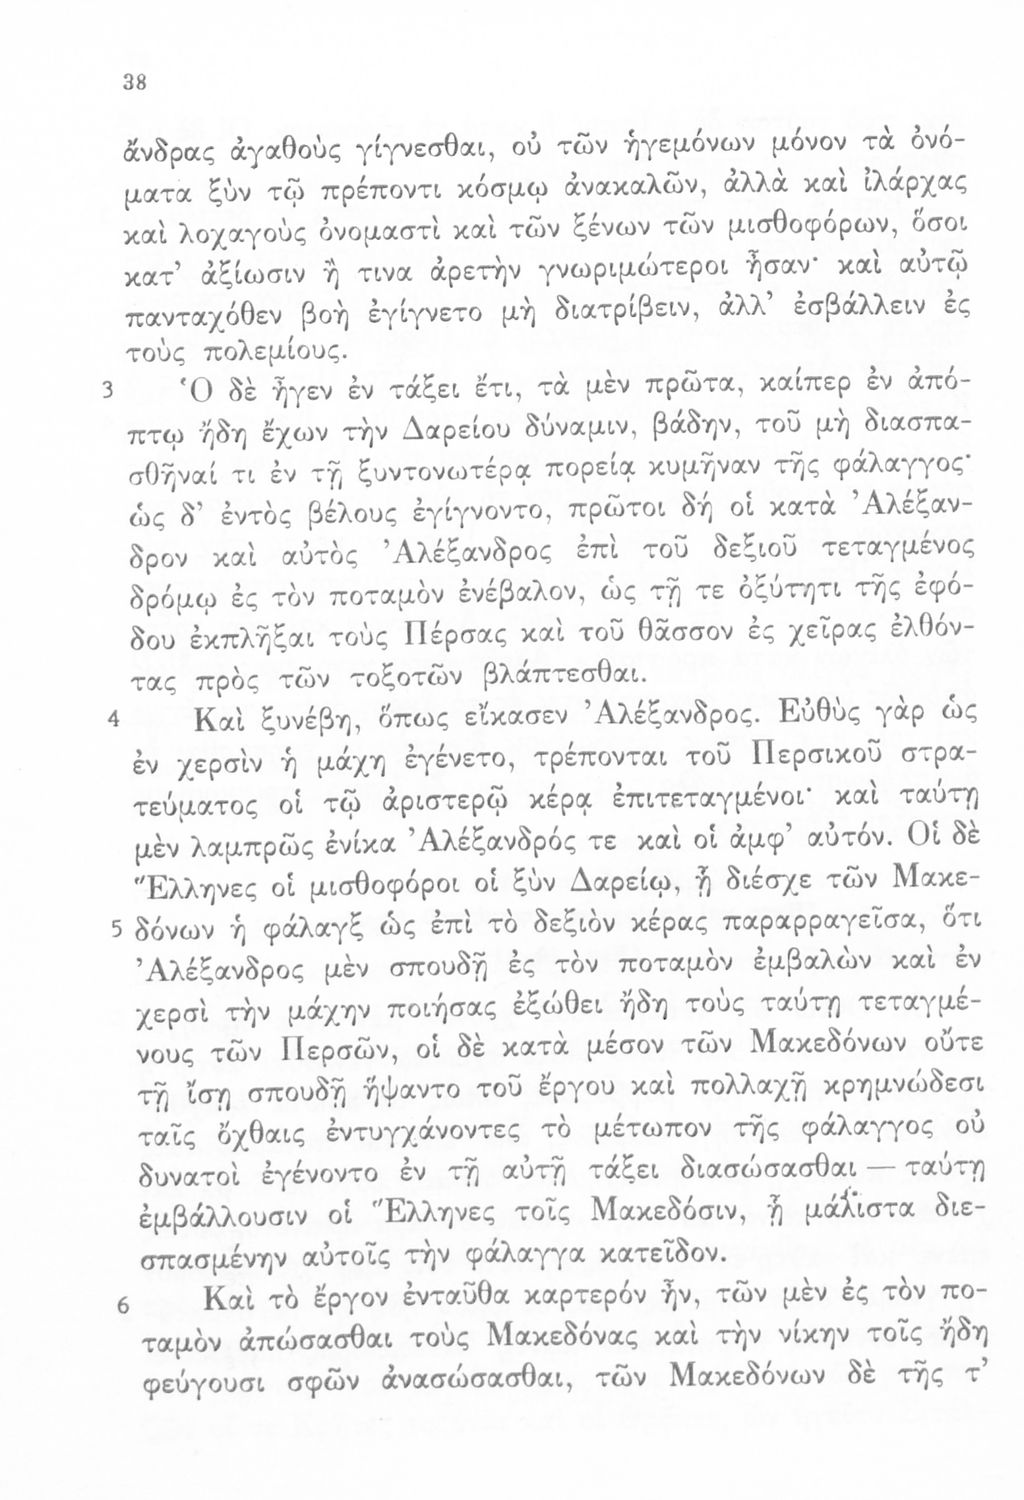 38
ἄνδρας ἀγαθοὺς γίγνεσθαι, οὐ τῶν ἡγεμόνων μόνον τὰ ὀνό-
ματα ξὺν τῷ πρέποντι κόσμῳ ἀνακαλῶν, ἀλλὰ καὶ ἰλάρχας
καὶ λοχαγοὺς ὀνομαστὶ καὶ τῶν ξένων τῶν μισθοφόρων, ὅσοι
κατ’ ἀξίωσιν ἤ τινα ἀρετὴν γνωριμώτεροι ἦσαν· καὶ αὐτῷ
πανταχόθεν βοὴ ἐγίγνετο μὴ διατρίβειν, ἀλλ’ ἐσβάλλειν ἐς
τοὺς πολεμίους.
3 Ὁ δὲ ἦγεν ἐν τάξει ἔτι, τὰ μὲν πρῶτα, καίπερ ἐν ἀπό-
πτῳ ἤδη ἔχων τὴν Δαρείου δύναμιν, βάδην, τοῦ μὴ διασπα-
σθῆναί τι ἐν τῇ ξυντονωτέρᾳ πορείᾳ κυμῆναν τῆς φάλαγγος·
ὡς δ’ ἐντὸς βέλους ἐγίγνοντο, πρῶτοι δή οἱ κατὰ Ἀλέξαν-
δρον καὶ αὐτὸς Ἀλέξανδρος ἐπὶ τοῦ δεξιοῦ τεταγμένος
δρόμῳ ἐς τὸν ποταμὸν ἐνέβαλον, ὡς τῇ τε ὀξύτητι τῆς ἐφό-
δου ἐκπλῆξαι τοὺς Πέρσας καὶ τοῦ θᾶσσον ἐς χεῖρας ἐλθόν-
τας πρὸς τῶν τοξοτῶν βλάπτεσθαι.
4 Καὶ ξυνέβη, ὅπως εἴκασεν Ἀλέξανδρος. Εὐθὺς γὰρ ὡς
ἐν χερσὶν ἡ μάχη ἐγένετο, τρέπονται τοῦ Περσικοῦ στρα-
τεύματος οἱ τῷ ἀριστερῷ κέρᾳ ἐπιτεταγμένοι· καὶ ταύτῃ
μὲν λαμπρῶς ἐνίκα Ἀλέξανδρός τε καὶ οἱ ἀμφ’ αὐτόν. Οἱ δὲ
Ἕλληνες οἱ μισθοφόροι οἱ ξὺν Δαρείῳ, ᾗ διέσχε τῶν Μακε-
5 δόνων ἡ φάλαγξ ὡς ἐπὶ τὸ δεξιὸν κέρας παραρραγεῖσα, ὅτι
Ἀλέξανδρος μὲν σπουδῇ ἐς τὸν ποταμὸν ἐμβαλὼν καὶ ἐν
χερσὶ τὴν μάχην ποιήσας ἐξώθει ἤδη τοὺς ταύτῃ τεταγμέ-
νους τῶν Περσῶν, οἱ δὲ κατὰ μέσον τῶν Μακεδόνων οὔτε
τῇ ἴσῃ σπουδῇ ἥψαντο τοῦ ἔργου καὶ πολλαχῇ κρημνώδεσι
ταῖς ὄχθαις ἐντυγχάνοντες τὸ μέτωπον τῆς φάλαγγος οὐ
δυνατοὶ ἐγένοντο ἐν τῇ αὐτῇ τάξει διασώσασθαι — ταύτῃ
ἐμβάλλουσιν οἱ Ἕλληνες τοῖς Μακεδόσιν, ᾗ μάλιστα διε-
σπασμένην αὐτοῖς τὴν φάλαγγα κατεῖδον.
6 Καὶ τὸ ἔργον ἐνταῦθα καρτερόν ἦν, τῶν μὲν ἐς τὸν πο-
ταμὸν ἀπώσασθαι τοὺς Μακεδόνας καὶ τὴν νίκην τοῖς ἤδη
φεύγουσι σφῶν ἀνασώσασθαι, τῶν Μακεδόνων δὲ τῆς τ’